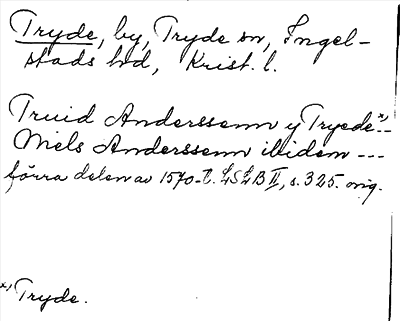 Tryde, by, Tryde sn, Ingel-
stads hd, Krist. l.
Truid Anderssenn y Tryede x) --
Niels Anderssenn ibidem ---
förra delen av 1570-t. LSLB II, s. 325. orig.
x) Tryde.